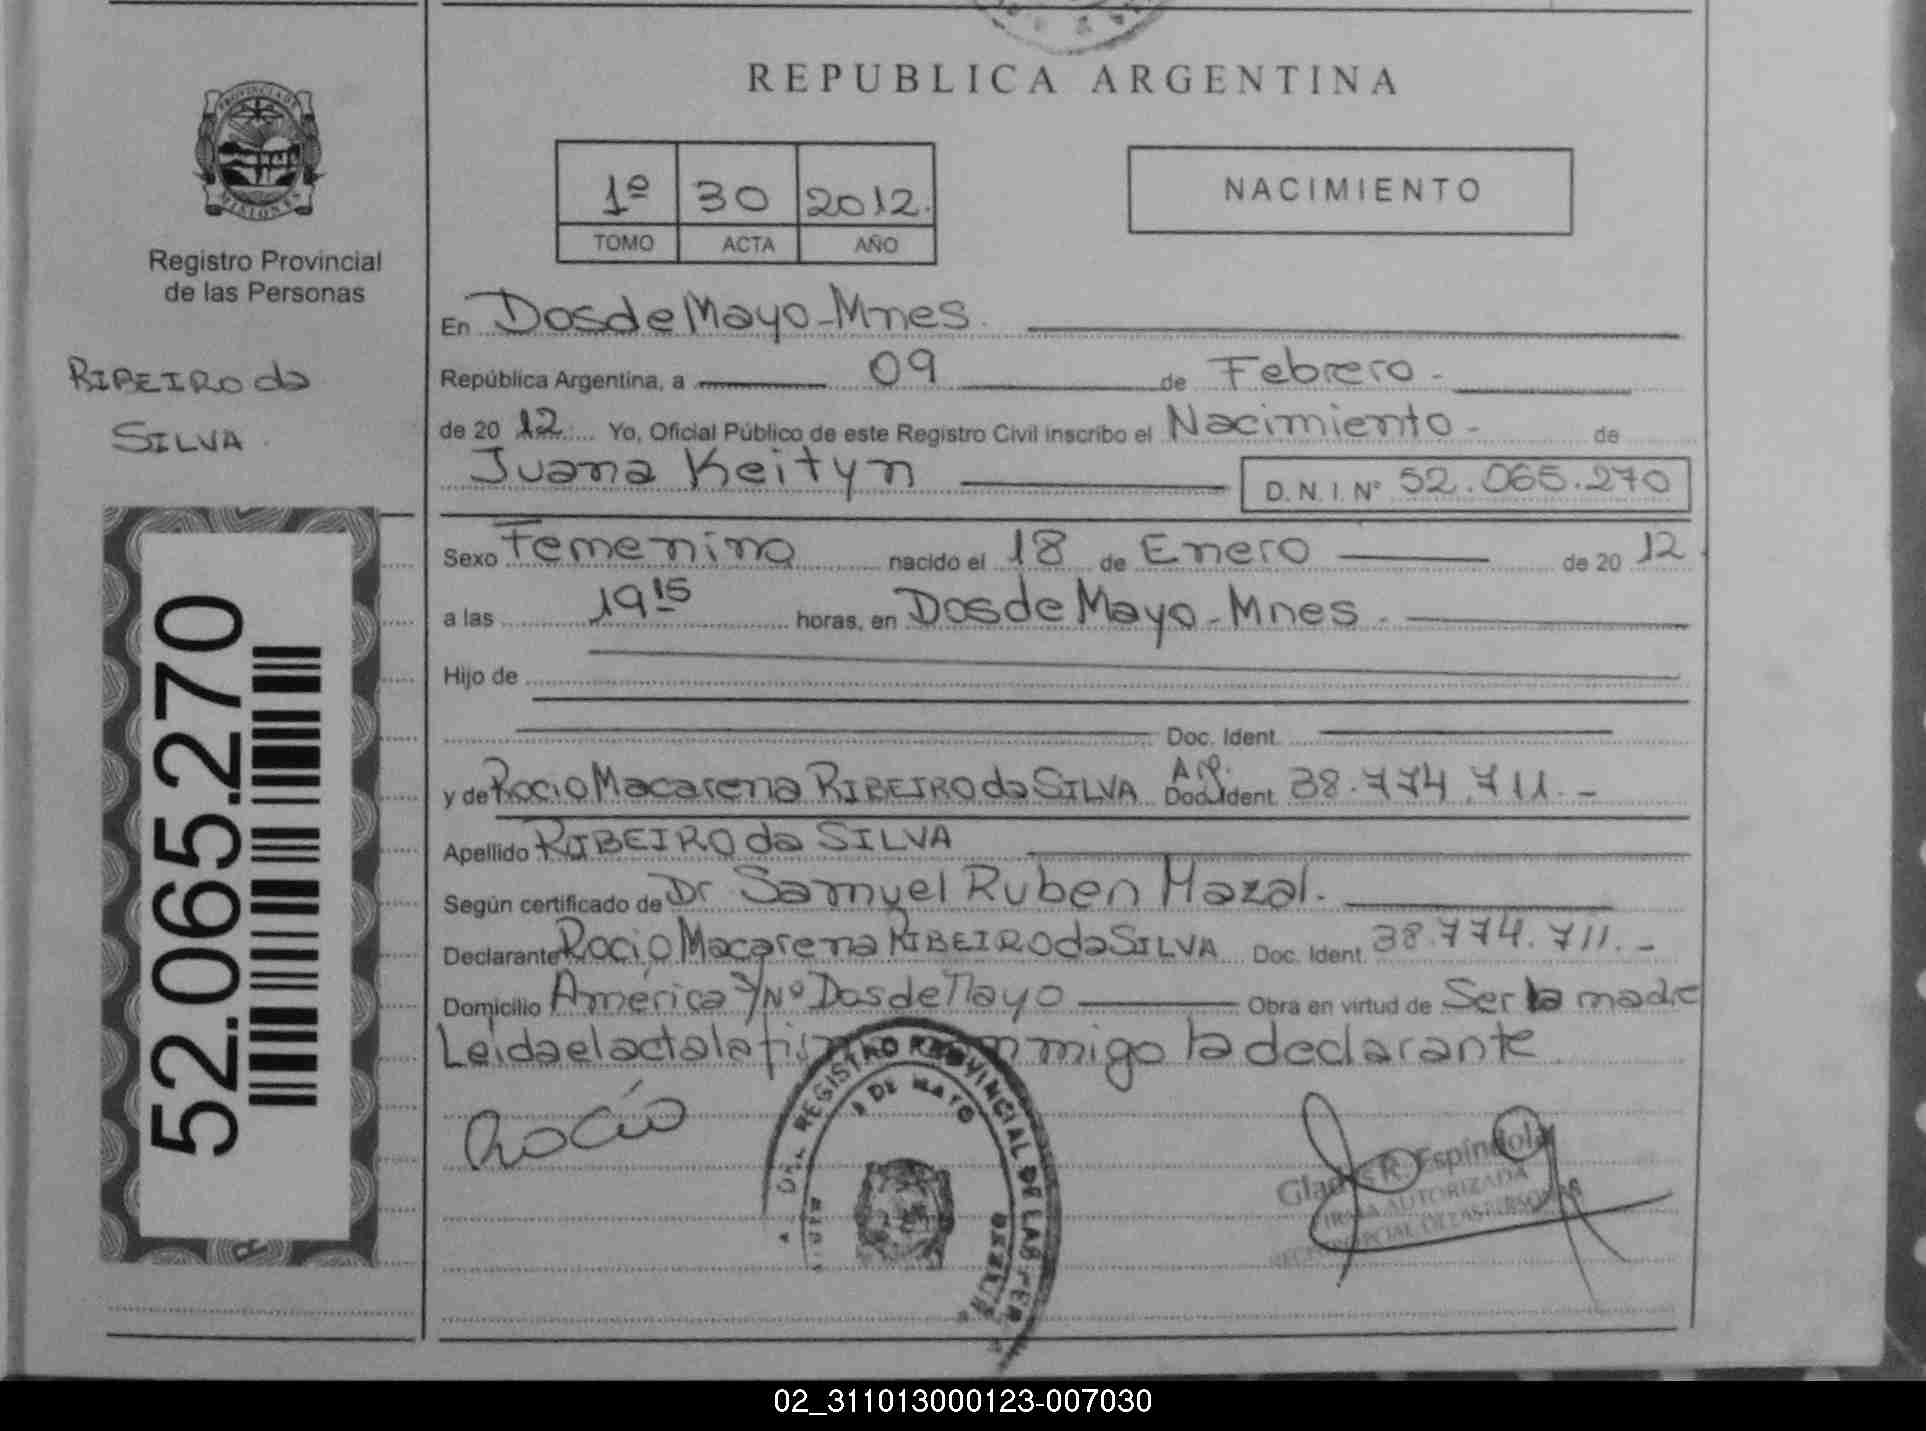 REPUBLICA ARGENTINA
PROVINCIA DE
MISIONES
Registro Provincial
de las Personas
RIBEIRO da
SILVA.
52.065.270
1º 30 2012.
TOMO ACTA AÑO
NACIMIENTO
En Dos de Mayo - Mnes.
República Argentina, a 09 de Febrero -
de 20 12 Yo, Oficial Público de este Registro Civil inscribo el Nacimiento - de
Juana Keityn D.N.I. Nº 52.065.270
Sexo Femenino nacido el 18 de Enero de 20 12
a las 19 15 horas, en Dos de Mayo - Mnes.
Hijo de
Doc. Ident.
y de Rocio Macarena RIBEIRO da SILVA Doc. Ident. 38.774.711.-
Apellido RIBEIRO da SILVA
Según certificado de Dr. Samuel Ruben Mazal.
Declarante Rocio Macarena RIBEIRO da SILVA Doc. Ident. 38.774.711.-
Domicilio América S/Nº Dos de Mayo Obra en virtud de Ser la madre
Leida el acta la conmigo la declarante
Rocío
REGISTRO PROVINCIAL DE LAS PER
DE MAYO
Gladis R. Espíndola
FIRMA AUTORIZADA
02_311013000123-007030